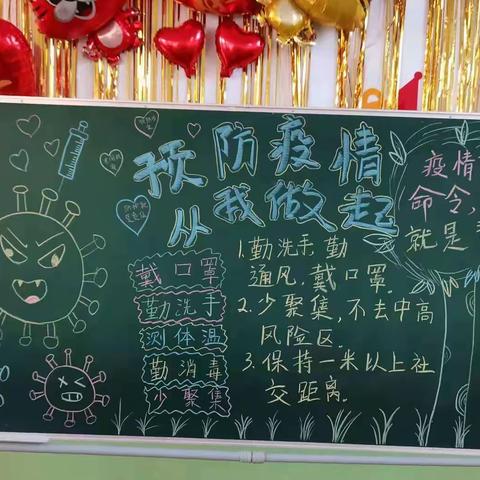 预防疫情
从我做起
戴口罩
勤洗手
测体温
勤消毒
少聚集
1.勤洗手,勤
通风,戴口罩.
2.少聚集,不去中高
风险区.
3.保持一米以上社
交距离.
疫情
命令,
就是